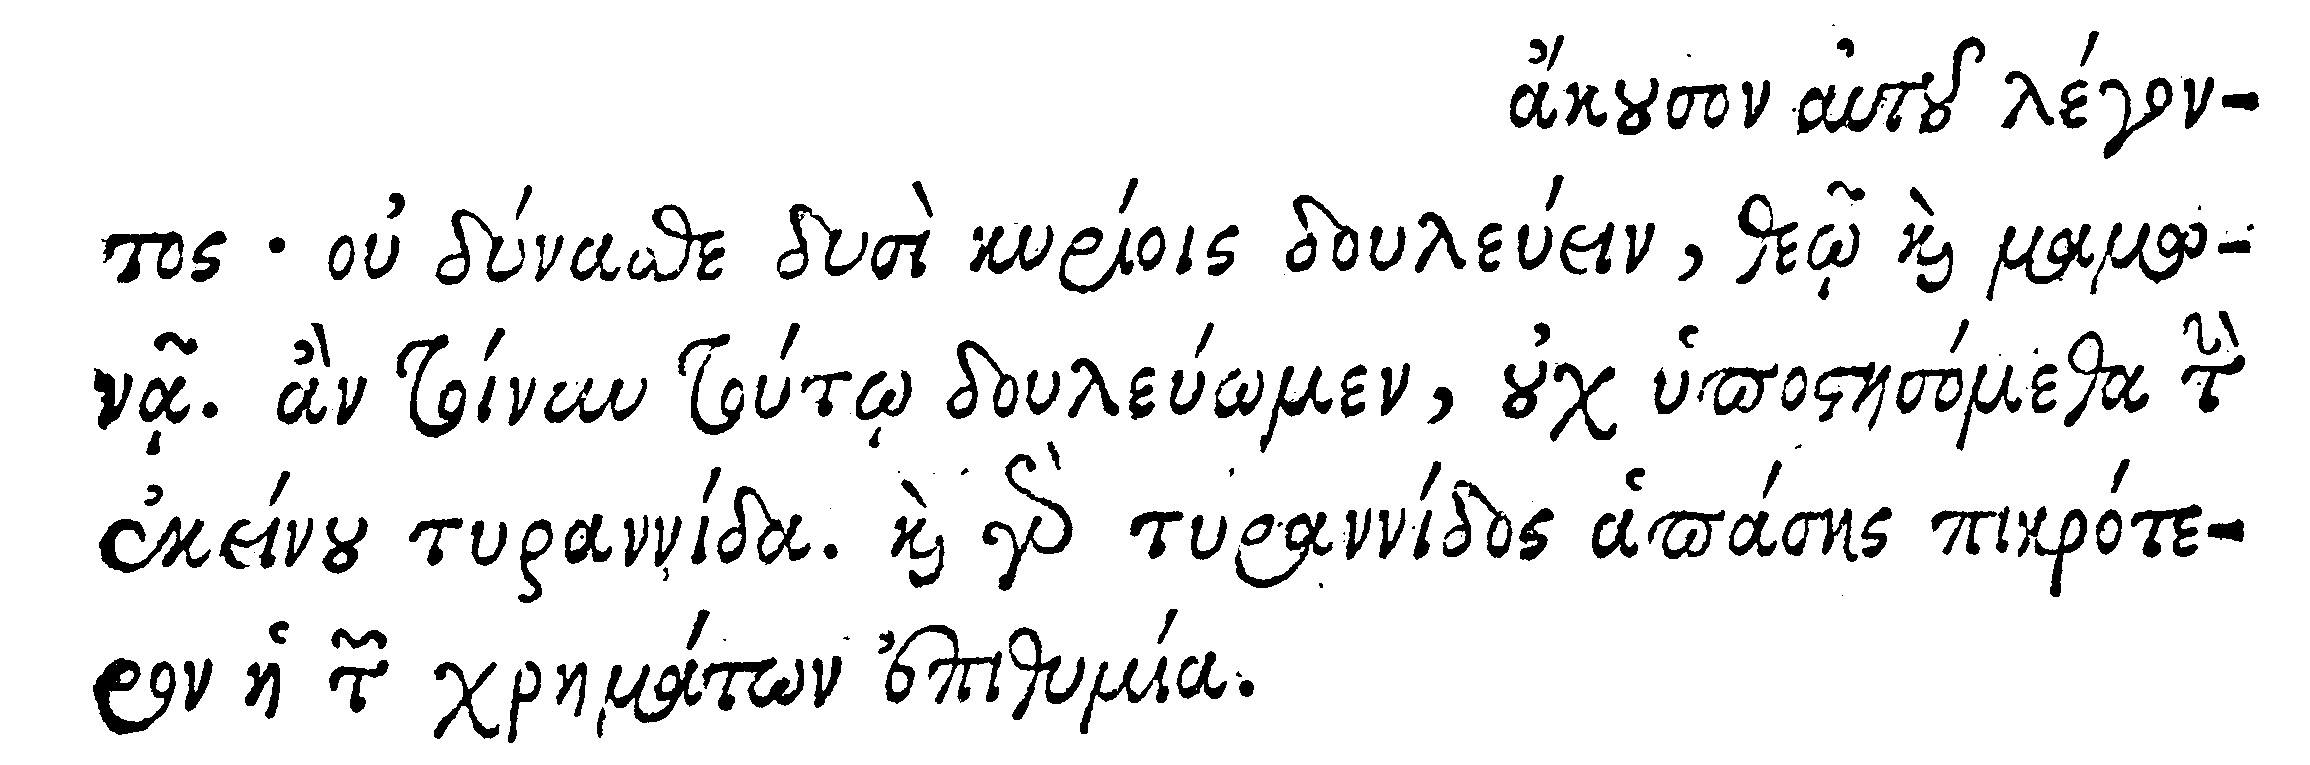 ἄκουσον αὐτοῦ λέγον-
τος · οὐ δύνασθε δυσὶ κυρίοις δουλεύειν, θεῷ καὶ μαμω-
νᾷ. ἂν τοίνυν τούτῳ δουλεύωμεν, οὐχ ὑποστησόμεθα τὴν
ἐκείνου τυραννίδα. καὶ γὰρ τυραννίδος ἁπάσης πικρότε-
ρον ἡ τῶν χρημάτων ἐπιθυμία.